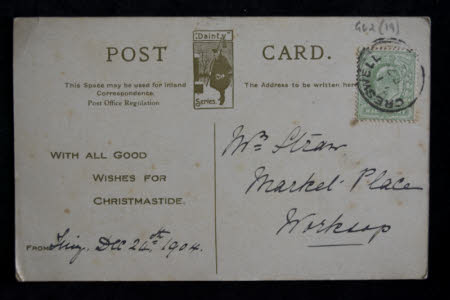 G62 (19)
POST CARD.
"Dainty"
Series.
This Space may be used for Inland
Correspondence.
Post Office Regulation
The Address to be written here
CRESWELL
WITH ALL GOOD
WISHES FOR
CHRISTMASTIDE.
FROM Dec 24th 1904.
Wm Straw
Market Place
Worksop